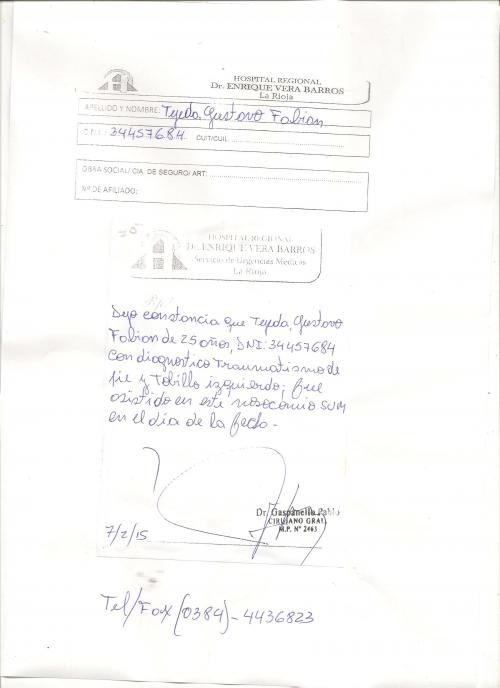 HOSPITAL REGIONAL
Dr. ENRIQUE VERA BARROS
La Rioja
APELLIDO Y NOMBRE: Tejeda, Gustavo Fabian
D.N.I.: 34457684 CUIT/CUIL:
OBRA SOCIAL/ CIA. DE SEGURO/ ART:
Nº DE AFILIADO:
HOSPITAL REGIONAL
Dr. ENRIQUE VERA BARROS
Servicio de Urgencias Médicas
La Rioja
Dejo constancia que Tejeda, Gustavo
Fabian de 25 años, DNI: 34457684
con diagnostico Traumatismo de
pie y Tobillo izquierdo; fue
asistido en este nosocomio SUM
en el dia de la fecha -
Dr. Gaspanello Pablo
CIRUJANO GRAL.
M.P. Nº 2463
7/2/15
Tel/Fax (0384) - 4436823